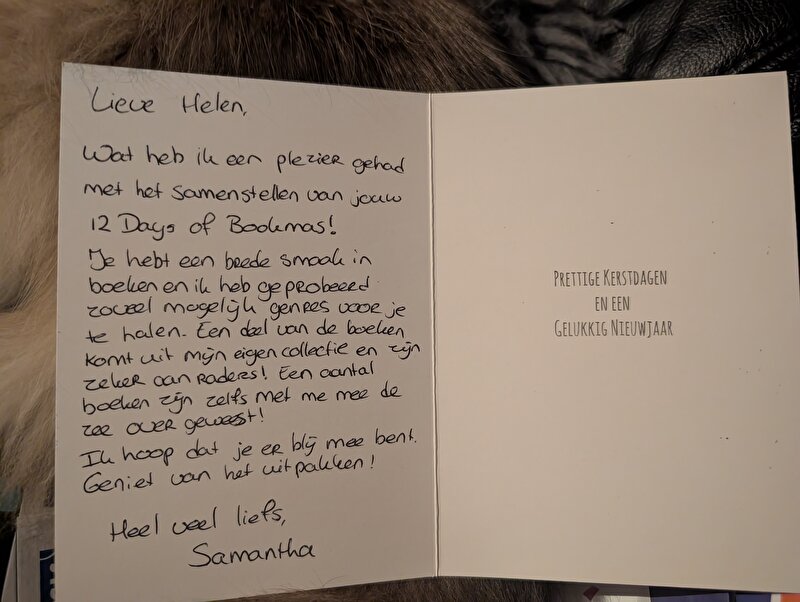 Lieve Helen,
Wat heb ik een plezier gehad
met het samenstellen van jouw
12 Days of Bookmas!
Je hebt een brede smaak in
boeken en ik heb geprobeerd
zoveel mogelijk genres voor je
te halen. Een deel van de boeken
komt uit mijn eigen collectie en zijn
zeker aanraders! Een aantal
boeken zijn zelfs met me mee de
zee over geweest!
Ik hoop dat je er blij mee bent.
Geniet van het uitpakken!
Heel veel liefs,
Samantha
PRETTIGE KERSTDAGEN
EN EEN
GELUKKIG NIEUWJAAR